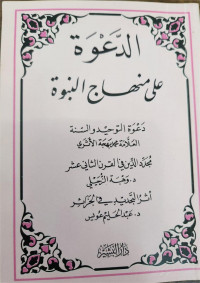 الدعوة
على منهاج النبوة
دعوة التوحيد والسنة
العلامة محمد بهجة الأثري
مجدد الدين في القرن الثاني عشر
د. وهبة الزحيلي
أثر التجديد في الجزائر
د. عبد الحليم عويس
دار القاسم